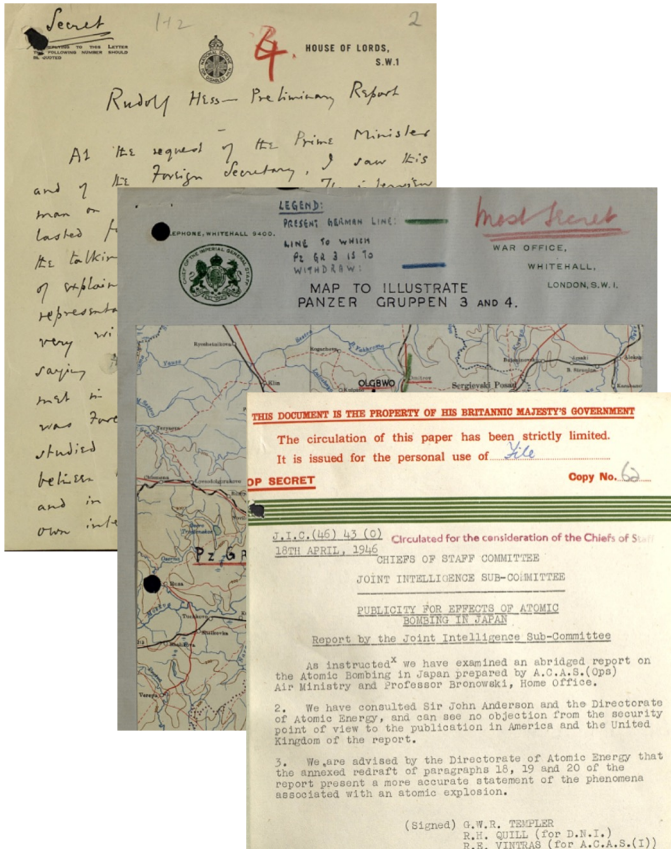 Secret
1+2
2
REFERRING TO THIS LETTER
FOLLOWING NUMBER SHOULD
BE QUOTED
4.
HOUSE OF LORDS,
S.W.1
Rudolf Hess — Preliminary Report
At the request of the Prime Minister
and of the Foreign Secretary, I saw this
man on The interview
lasted f
the talkin
of explain
representa
very wi
saying
met in
was Fore
studied
between
and in
own inte
LEGEND:
PRESENT GERMAN LINE:
LINE TO WHICH
PZ GR 3 IS TO
WITHDRAW:
Most Secret
TELEPHONE, WHITEHALL 9400.
CHIEF OF THE IMPERIAL GENERAL STAFF
WAR OFFICE,
WHITEHALL,
LONDON, S.W.1.
MAP TO ILLUSTRATE
PANZER GRUPPEN 3 AND 4.
Klin
OLGBWO
Sergievski Posad
Pz GR
THIS DOCUMENT IS THE PROPERTY OF HIS BRITANNIC MAJESTY'S GOVERNMENT
The circulation of this paper has been strictly limited.
It is issued for the personal use of File
OP SECRET
Copy No. 62
J.I.C.(46) 43 (O)
Circulated for the consideration of the Chiefs of Staff
18TH APRIL, 1946
CHIEFS OF STAFF COMMITTEE
JOINT INTELLIGENCE SUB-COMMITTEE
PUBLICITY FOR EFFECTS OF ATOMIC
BOMBING IN JAPAN
Report by the Joint Intelligence Sub-Committee
As instructedx we have examined an abridged report on
the Atomic Bombing in Japan prepared by A.C.A.S.(Ops)
Air Ministry and Professor Bronowski, Home Office.
2. We have consulted Sir John Anderson and the Directorate
of Atomic Energy, and can see no objection from the security
point of view to the publication in America and the United
Kingdom of the report.
3. We are advised by the Directorate of Atomic Energy that
the annexed redraft of paragraphs 18, 19 and 20 of the
report present a more accurate statement of the phenomena
associated with an atomic explosion.
(Signed) G.W.R. TEMPLER
R.H. QUILL (for D.N.I.)
R.E. VINTRAS (for A.C.A.S.(I))